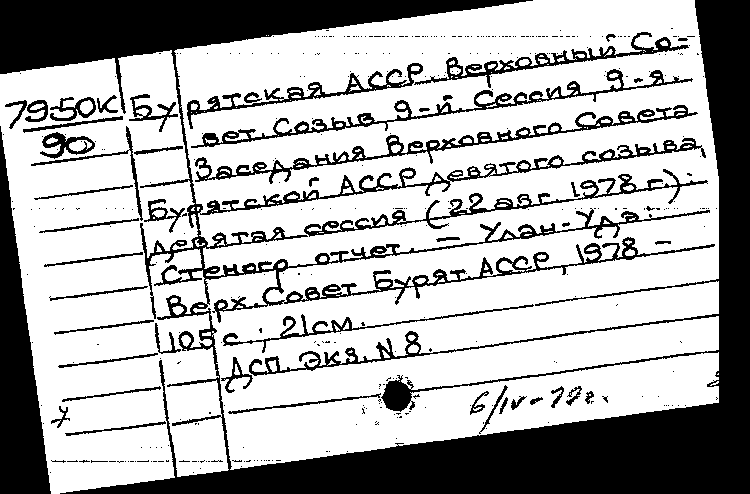 79-50К
90
Бурятская АССР. Верховный Со-
вет. Созыв, 9-й. Сессия, 9-я.
Заседания Верховного Совета
Бурятской АССР девятого созыва,
девятая сессия (22 авг. 1978 г.):
Стеногр. отчет. — Улан-Удэ:
Верх. Совет Бурят. АССР, 1978 –
105 с.; 21 см.
ДСП. Экз. N 8.
6/IV-79г.